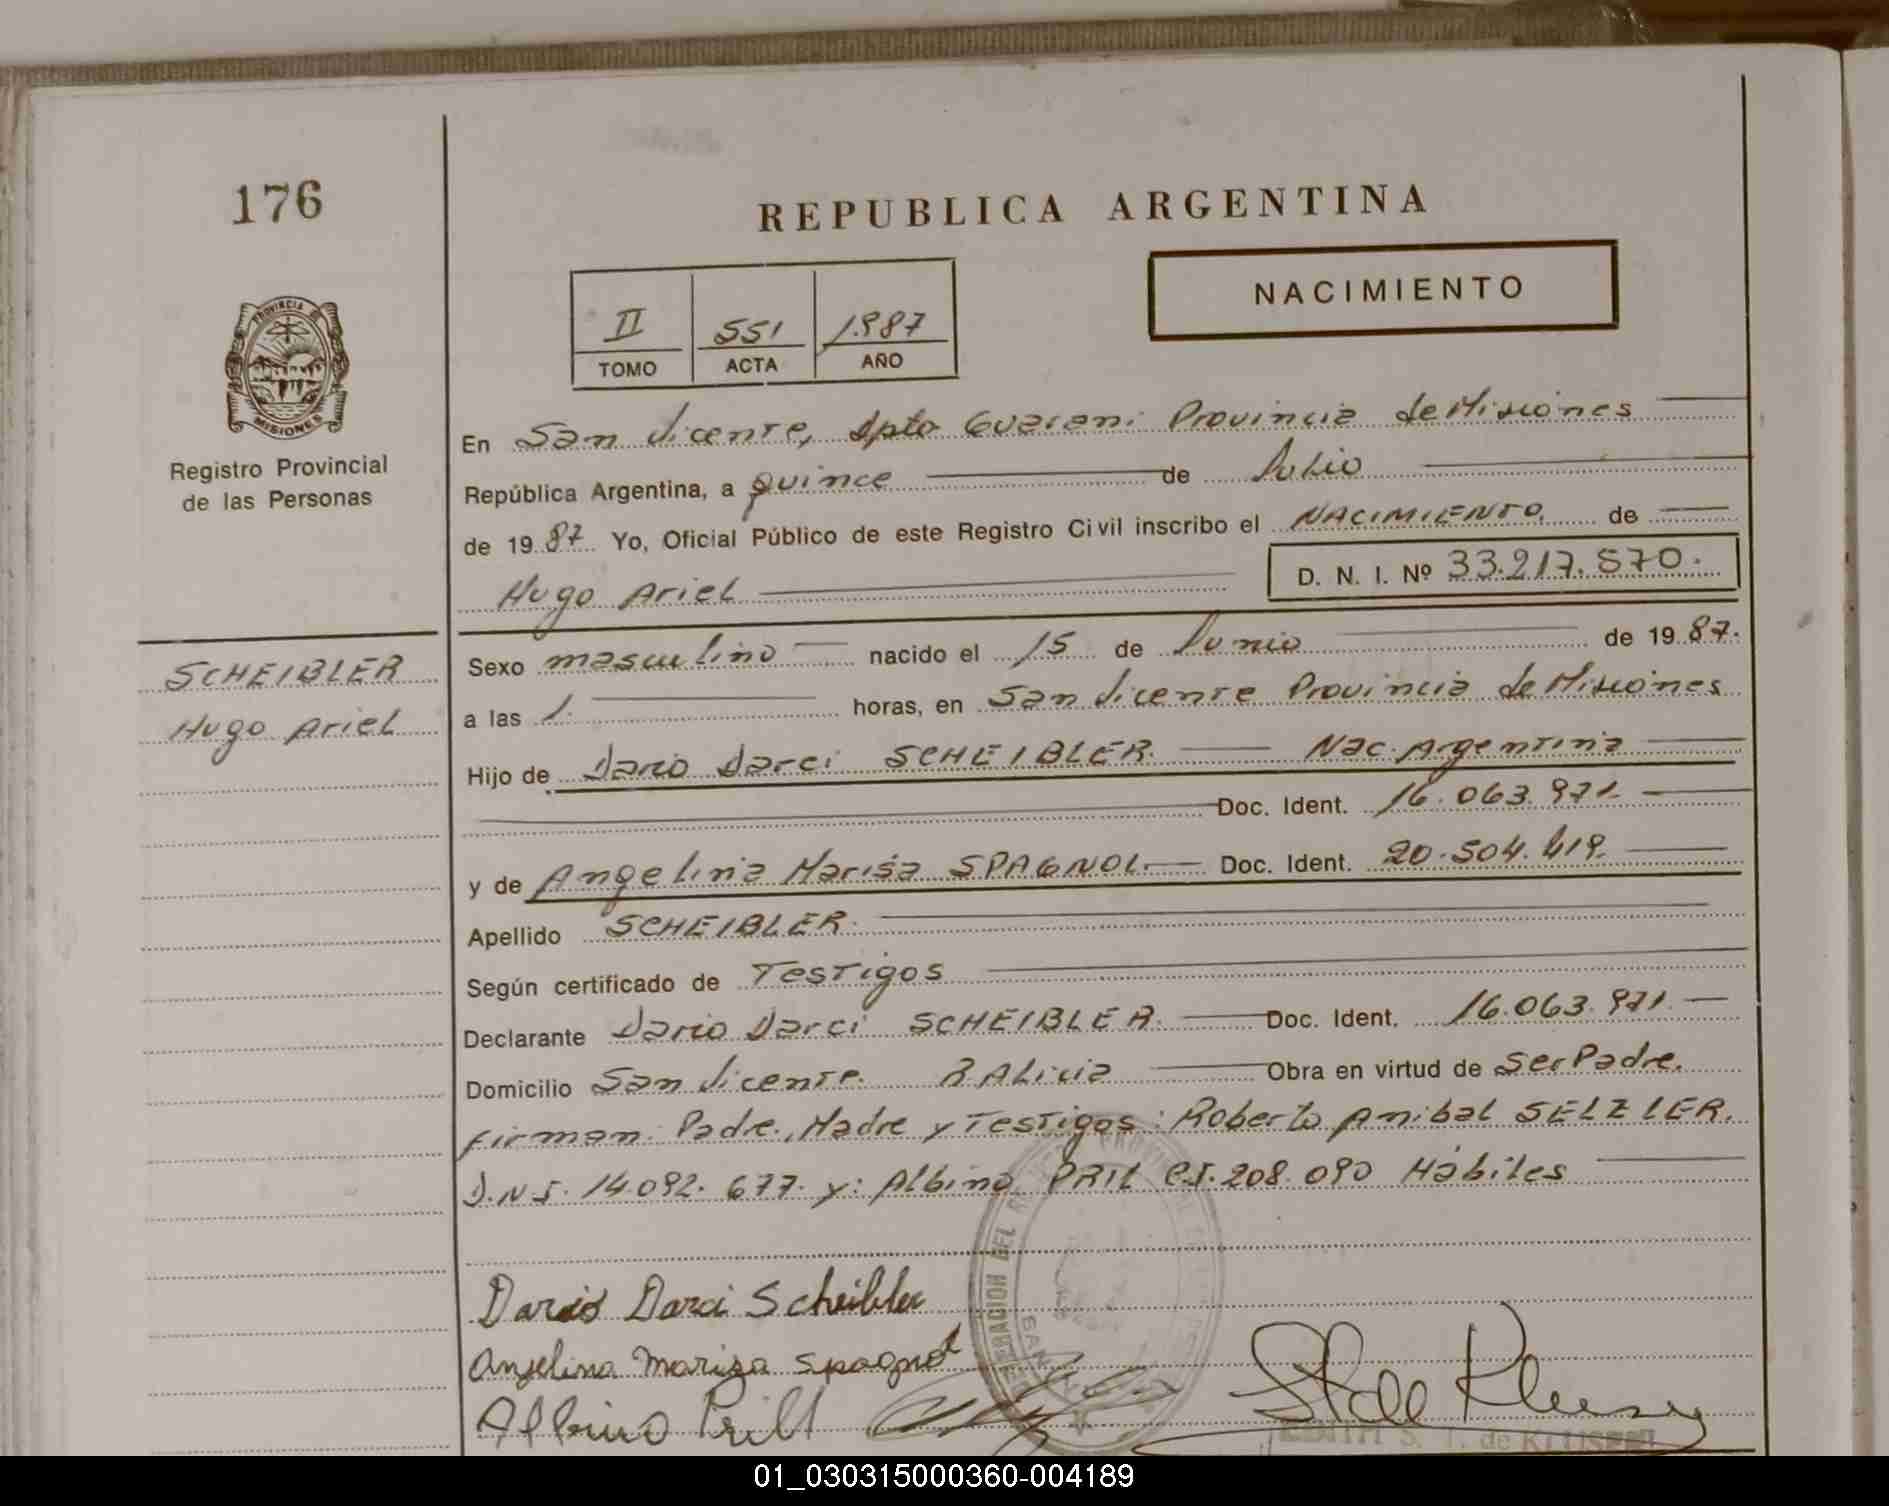 176
REPUBLICA ARGENTINA
NACIMIENTO
II 551 1.987
TOMO ACTA AÑO
PROVINCIA DE
MISIONES
Registro Provincial
de las Personas
En San Vicente, Dpto Guarani Provincia de Misiones
República Argentina, a quince de Julio
de 19 87 Yo, Oficial Público de este Registro Civil inscribo el NACIMIENTO de
Hugo Ariel D. N. I. Nº 33.217.570.
SCHEIBLER
Hugo Ariel
Sexo masculino nacido el 15 de Junio de 19 87.
a las 1. horas, en San Vicente Provincia de Misiones
Hijo de Dario Darci SCHEIBLER. Nac. Argentina
Doc. Ident. 16.063.971
y de Angelina Marisa SPAGNOL. Doc. Ident. 20.504.419.
Apellido SCHEIBLER.
Según certificado de Testigos
Declarante Dario Darci SCHEIBLER. Doc. Ident. 16.063.971.
Domicilio San Vicente. Alicia Obra en virtud de Ser Padre.
Firman: Padre, Madre y Testigos: Roberto Anibal SELZLER.
D.N.I. 14.092.677. y: Albino PRIL C.I. 208.090 Hábiles
Dario Darci Scheibler
Anjelina Mariza Spagnol
Albino Prill
S. T. de
01_030315000360-004189